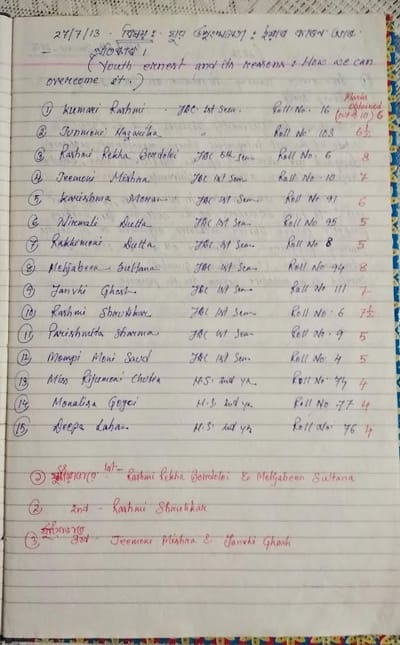 27/7/13 · বিষয় : যুৱ উশৃংখলতা : ইয়াৰ কাৰণ আৰু
প্ৰতিকাৰ।
(Youth unrest and its reasons : How we can
overcome it.)
Marks obtained (out of 10)
① Kumari Rashmi · TDC 1st Sem. Roll No. 16 6
② Junmoni Hazarika " Roll No. 103 6½
③ Rashmi Rekha Bordoloi TDC 5th Sem Roll No. 6 8
④ Jeemoni Mishra TDC 1st Sem Roll No. 10 7
⑤ Karishma Moran TDC 1st Sem Roll No 91 6
⑥ Nirmali Dutta TDC 1st Sem Roll No 95 5
⑦ Dutta TDC 1st Sem Roll No 8 5
⑧ Mehjabeen Sultana TDC 1st Sem Roll No. 94 8
⑨ Janvhi Ghosh TDC 1st Sem Roll No. 111 7
⑩ Rashmi TDC 1st Sem Roll No. 6 7½
⑪ Parishmita Sharma TDC 1st Sem Roll No. 9 5
⑫ Mompi Moni Saud TDC 1st Sem Roll No. 4 5
⑬ Miss Rijumoni Chutia H.S. 2nd yr. Roll No. 74 4
⑭ Monalisa Gogoi H.S. 2nd yr. Roll No. 77 4
⑮ Deepa Lahan H.S. 2nd yr. Roll No. 76 4
1st – Rashmi Rekha Bordoloi & Mehjabeen Sultana
② 2nd - Rashmi
③ 3rd - Jeemoni Mishra & Janvhi Ghosh